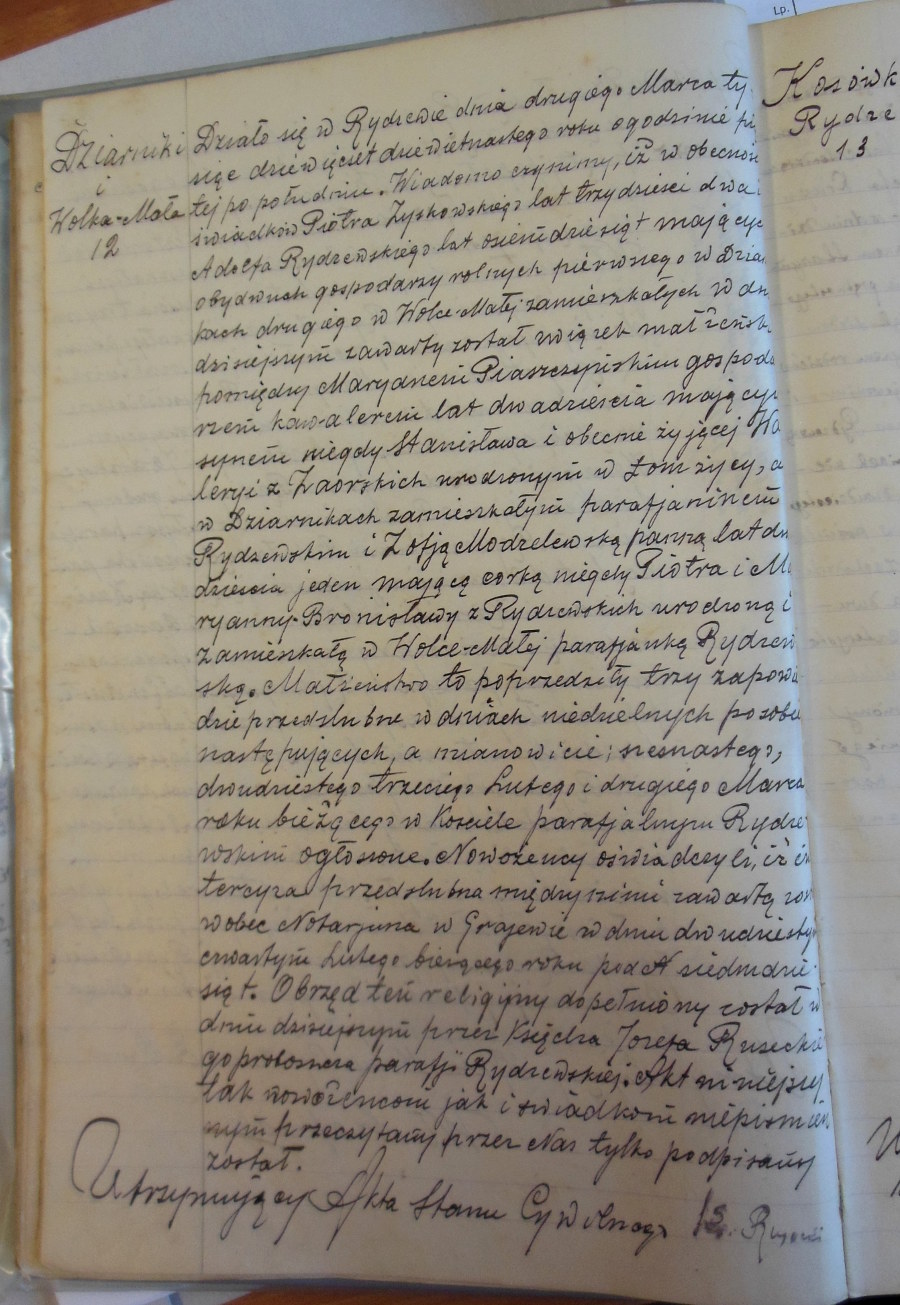 Lp.
Dziarniki
i
Wolka-Mała
12
Działo się w Rydzewie dnia drugiego Marca ty
siąc dziewięćet dziewietnastego roku ogodzinie pi
tej po południu. Wiadomo czynimy, iż w obecnoś
świadków Piotra Zyskowskiego lat trzydzieści dwa i
Adolfa Rydzewskiego lat osiemdziesiąt mającyc
obydwuch gospodarzy rolnych pierwszego w Dziar
kach drugiego w Wolce-Małej zamieszkałych w dn
dzisiejszym zawarty został związek małżeńsk
pomiędzy Maryanem Piaszczyńskim gospoda
rzem kawalerem lat dwadzieścia mającym
synem niegdy Stanisława i obecnie żyjącej Wa
leryi z Zaorskich urodzonym w Łomżycy, a
w Dziarnikach zamieszkałym parafjaninem
Rydzewskim i Zofją Modzelewską panną lat dw
dzieścia jeden mającą corką niegdy Piotra i Ma
ryanny-Bronisławy z Rydzewskich urodzoną i
zamieszkałą w Wolce-Małej parafjanką Rydzew
ską. Małżeństwo to poprzedziły trzy zapowie
dzie przedslubne w dniach niedzielnych po sobie
następujących, a mianowicie: szesnastego,
dwudziestego trzeciego Lutego i drugiego Marca
roku bieżącego w Kosciele parafjalnym Rydze
wskim ogłoszone. Nowożency oświadczyli, iż in
tercyza przedslubna między nimi zawartą zos
wobec Notarjusza w Grajewie w dniu dwudziesty
czwartym Lutego bieżącego roku pod N siedmdzie
siąt. Obrzęd ten religijny dopełniony został w
dniu dzisiejszym przez Księdza Jozefa Ruseckie
go proboszcza parafji Rydzewskiej. Akt niniejszy
tak nowożencom jak i swiadkom niepismien
nym przeczytany przez Nas tylko podpisany
został.
Utrzymujący Akta Stanu Cywilnego Ks. Rusecki
Kosówk
Rydze
13